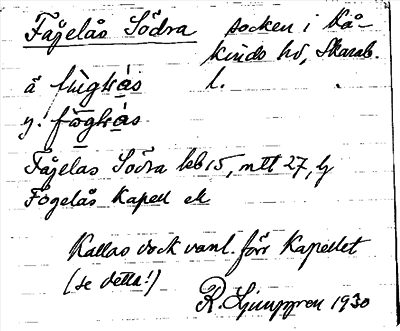 Fågelås Södra socken i Kå-
kinds hd, Skarab.
ä fùgḷås l.
y. fö̀gḷås
Fågelås Södra kb 15, mtt 27, lj
Fogelås Kapell ek
Kallas dock vanl. förr Kapellet
(se detta!)
R. Ljunggren 1930